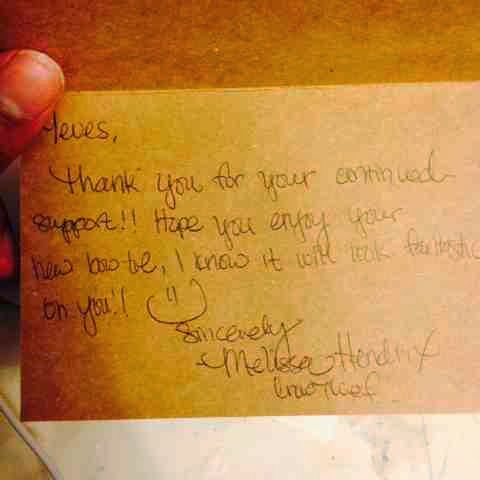 Yeves,
Thank you for your continued
support!! Hope you enjoy your
new bowtie, I know it will look fantastic
on you!!
Sincerely
Melissa Hendrix